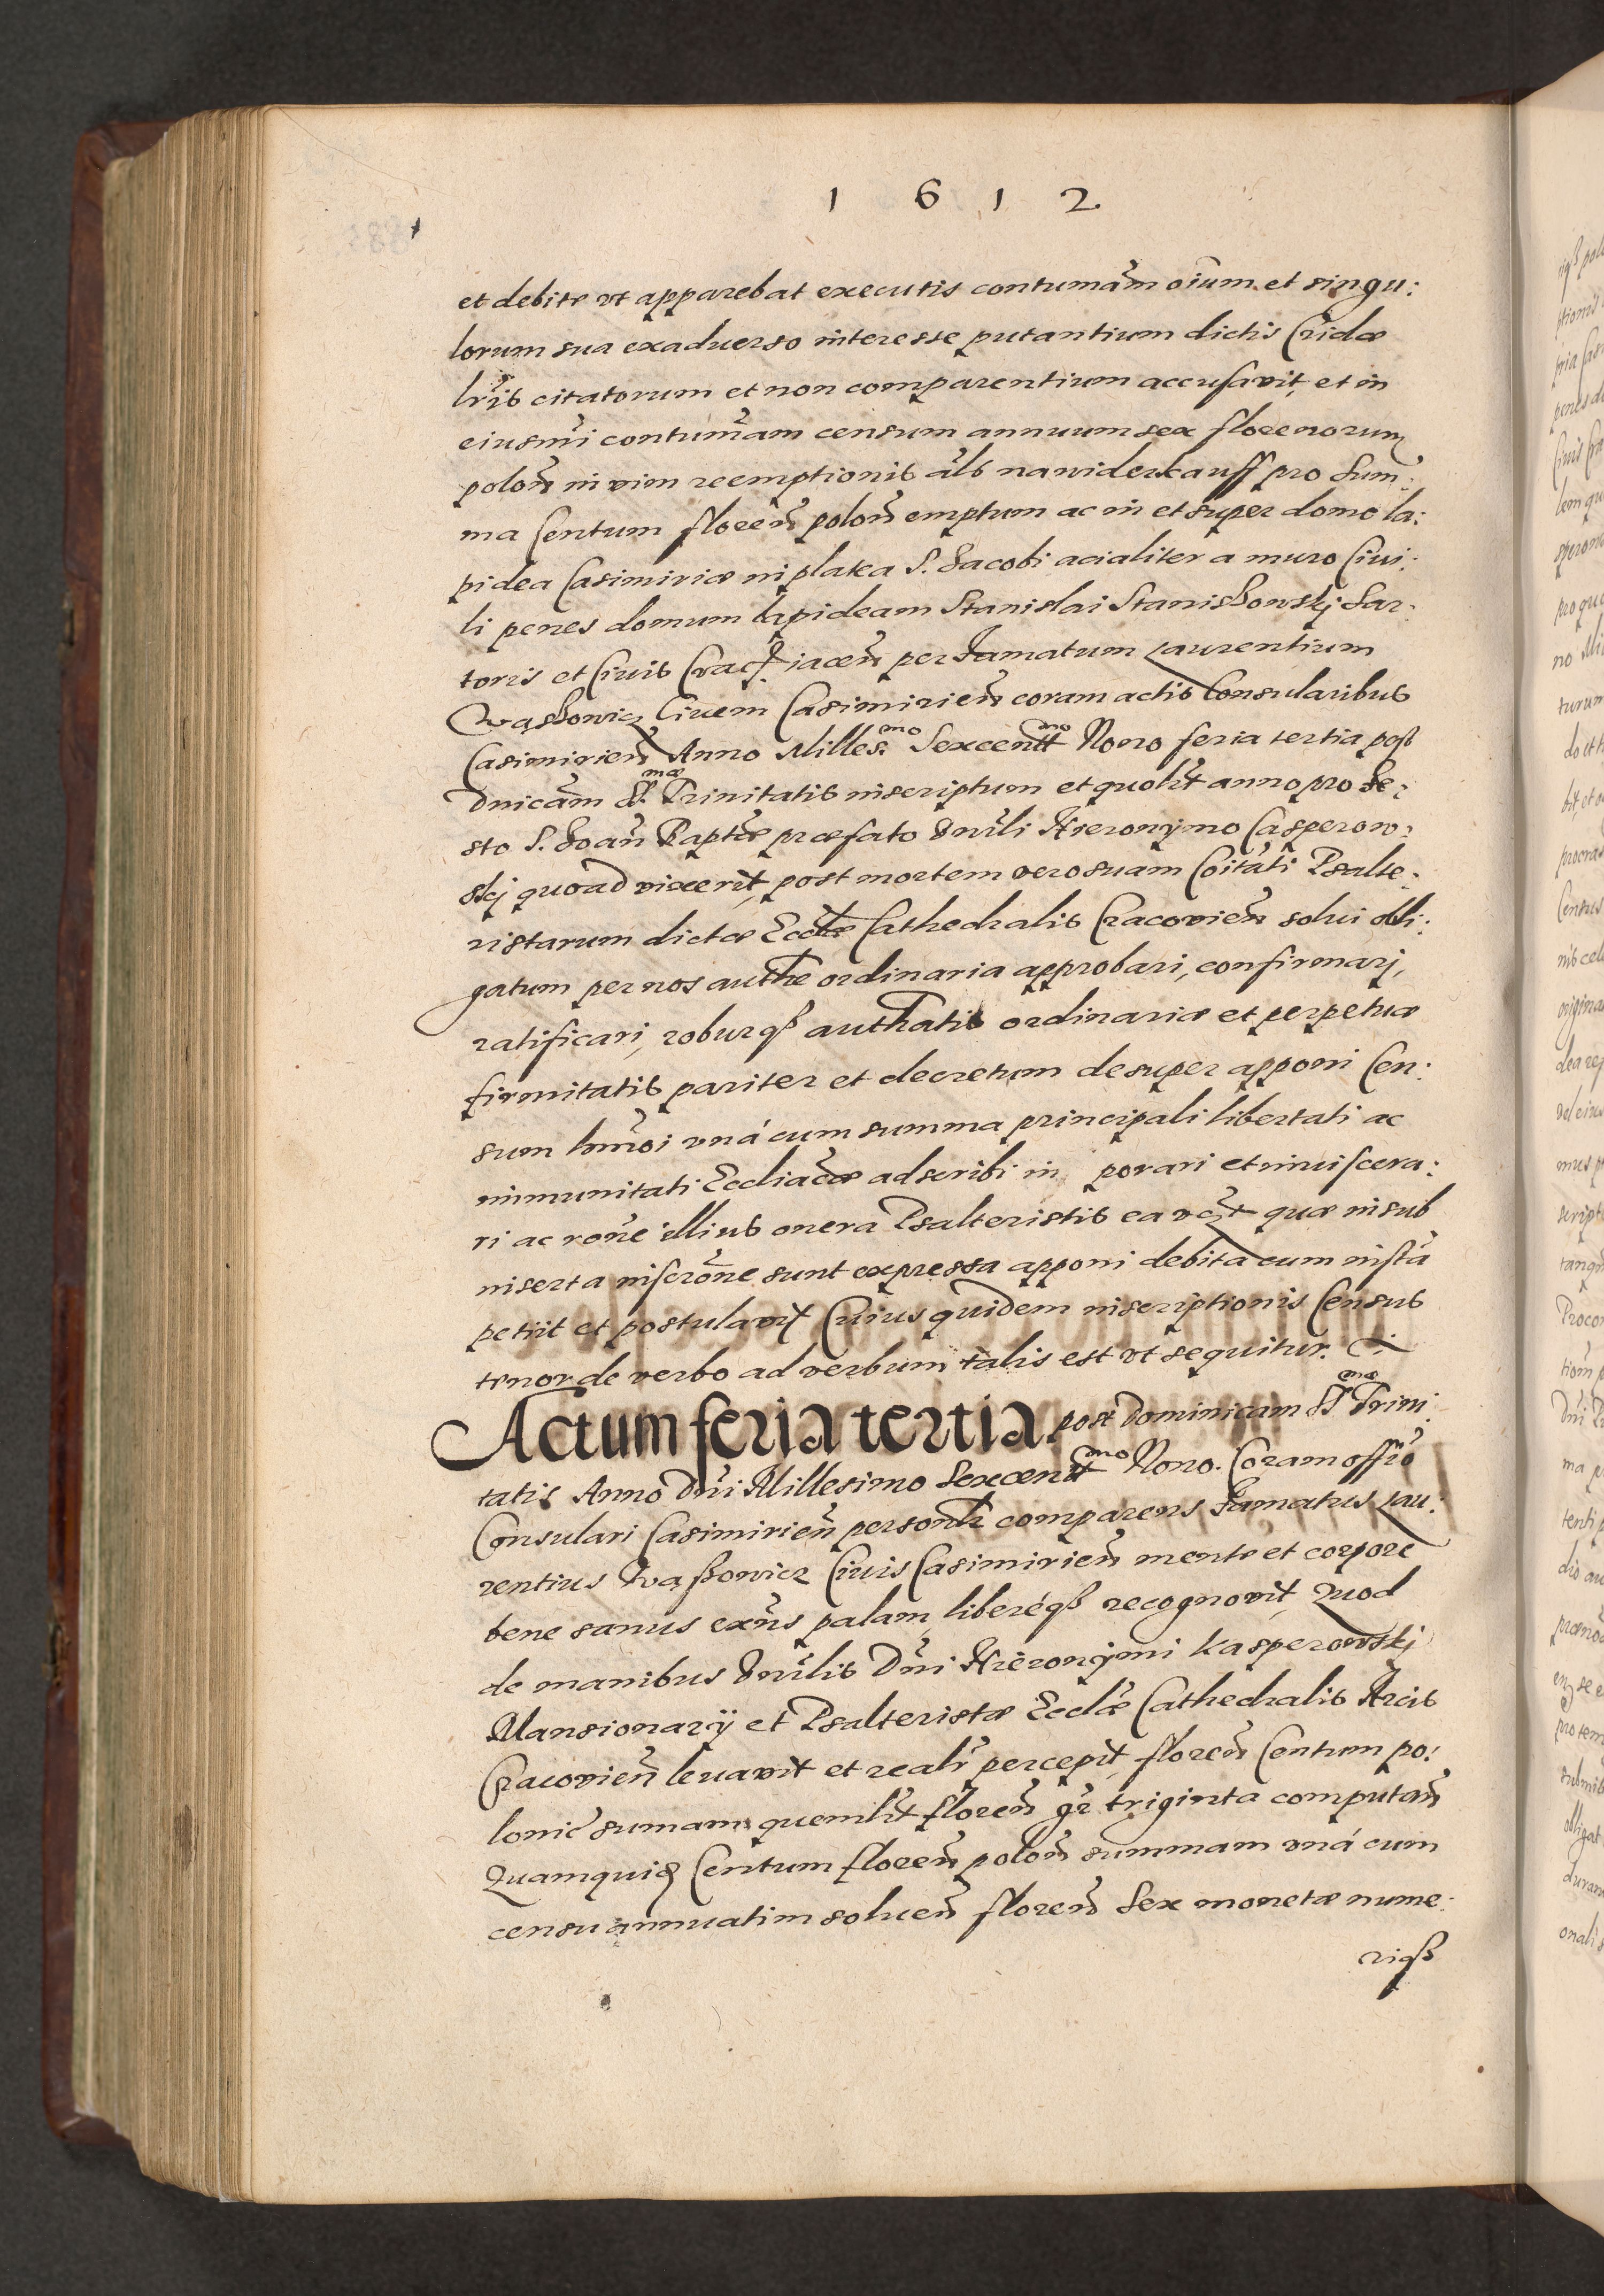 1612
et debite vt apparebat executis contumam̃ oium̃ et singu:
lorum sua exaduerso interesse putantium dictis Cridæ
lr̃is citatorum et non comparentium accusavit, et in
eiusm̃i contumam̃ censum annuum sex florenorum
polon̄ in vim reemptionis als̃ na widerkauff pro Sum:
ma Centum floren̄ polon̄ emptum ac in et super domo la:
pidea Casimiriæ in platea S. Jacobi acialiter a muro Ciui:
li penes domum lapideam Stanislai Staniszowskj Sar:
toris et Ciuis Crac̃ jacen̄ per Famatum Laurentium
Wąszowicz Ciuem Casimirien̄ coram actis Consularibus
Casimirien̄ Anno Milles:mo Sexcentmo Nono feria tertia post
Dnicam̃ S.mæ Trinitatis inscriptum et quolt̃ anno pro Fe:
sto S. Joan̄ Baptæ̃ præfato Vnrl̃i Hieronymo Casperow:
skj quoad vixerit, post mortem vero suam Coitãti Psalte:
ristarum dictæ Ecclæ̃ Cathedralis Cracovien̄ solui obli:
gatum per nos authe ordinaria approbari, confirmarj,
ratificari, roburqß authatis ordinariæ et perpetuæ
firmitatis pariter et decretum desuper apponi Cen:
sum hm̃oi vná cum summa principali libertati ac
immunitati Eccliacæ̃ adscribi in porari et inuiscera:
ri ac ronē illius onera Psalteristis ea vczt̃ quæ in sub
inserta inscrõne sunt expressa apponi debita cum instã
petiit et postulavit Cuius quidem inscriptionis Census
tenor de verbo ad verbum talis est vt sequitur.
Actum feria tertia post Dominicam S.mæ Trini:
tatis Anno Dn̄i Millesimo Sexcentmo Nono. Coram offĩo
Consulari Casimirien̄ personlr̃ comparens Famatus Lau:
rentius Wąszowicz Ciuis Casimirien̄ mente et corpore
bene sanus exñs palam, liberéqß recognovit, Quod
de manibus Vnrl̃is Dn̄i Hieronymi Kasperowskj
Mansionarij et Psalteristæ Ecclæ̃ Cathedralis Arcis
Cracovien̄ levavit et realr̃ percepit, floren̄ Centum po:
lonic̃ sumam̄ quemlt̃ floren̄ gr̃ triginta computan̄
Quamquid̃ Centum floren̄ polon̄ summam vná cum
censu annuatim soluen̄ floren̄ Sex monetæ nume:
riqß